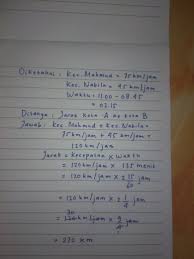 Diketahui : Kec. Mahmud = 75 km/jam
Kec. Nabila = 45 km/jam
Waktu = 11.00 - 08.45
= 02.15
Ditanya : Jarak Kota A ke Kota B
Jawab : Kec. Mahmud + Kec. Nabila =
75 km/jam + 45 km/jam =
120 km/jam
Jarak = Kecepatan x Waktu
= 120 km/jam x 135 menit
= 120 km/jam x 135/60 jam
= 120 km/jam x 2 1/4 jam
= 120 km/jam x 9/4 jam
30
= 270 km